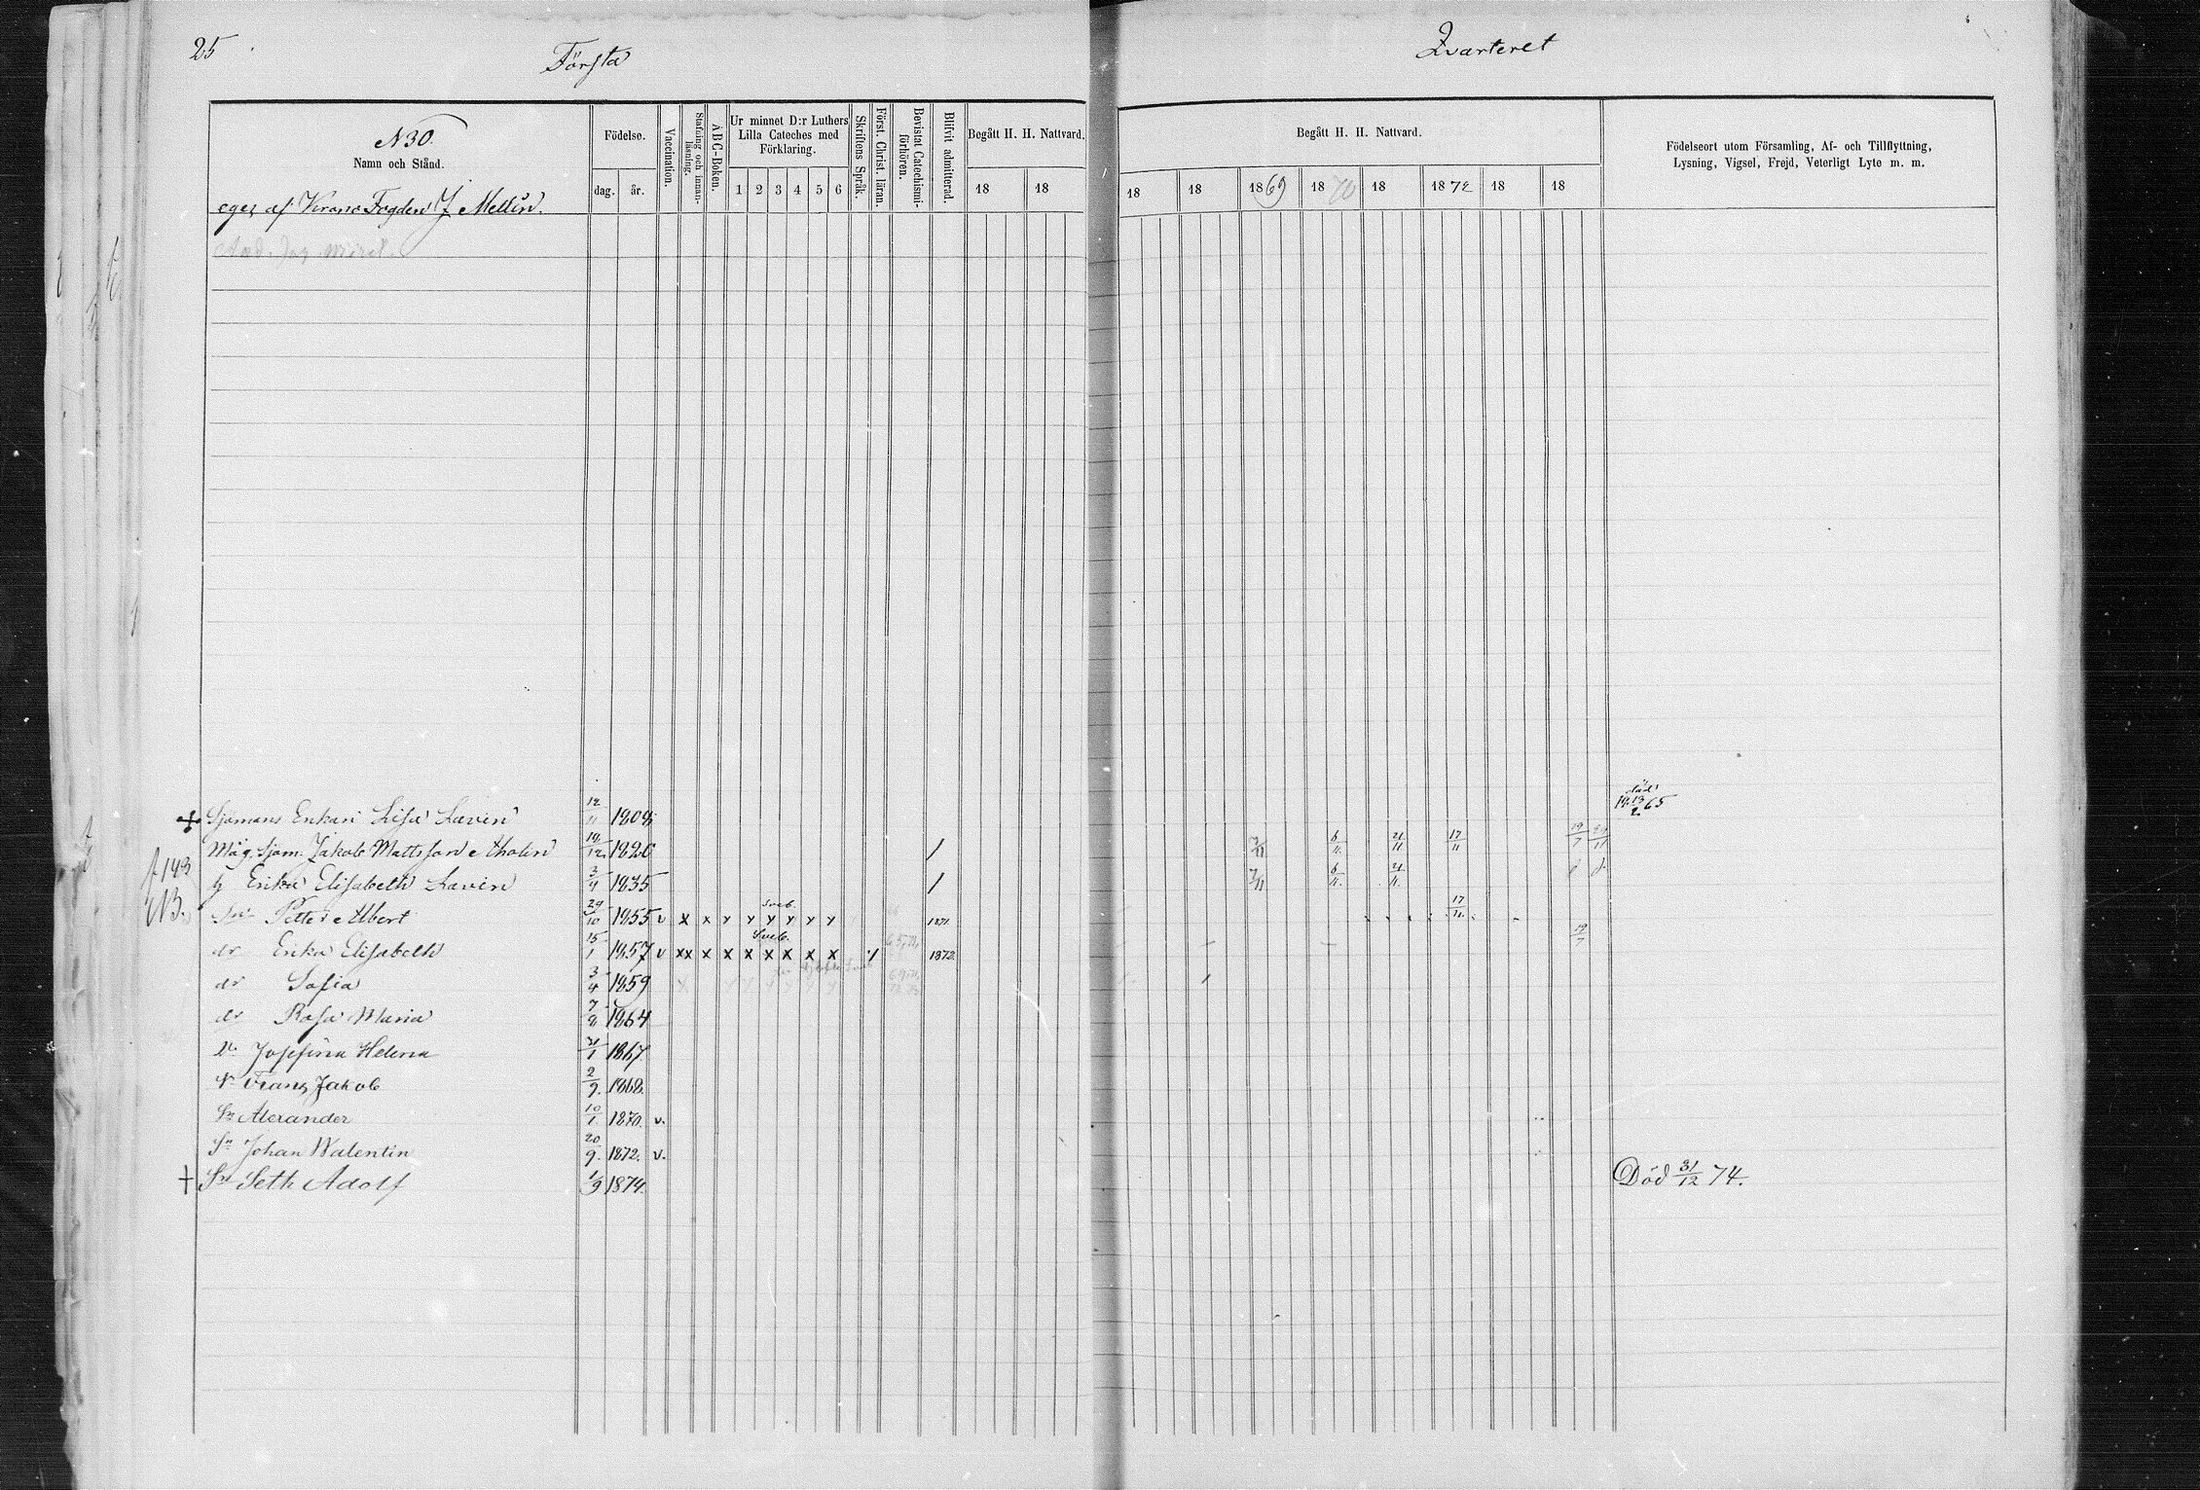 25
Första
Qvarteret
N 30.
Namn och Stånd.
Födelse.
dag.
år.
Vaccination.
Stafning och innanläsning.
ABC-Boken.
Ur minnet D:r Luthers Lilla Cateches med Förklaring.
1 2 3 4 5 6
Skriftens Språk.
Först. Christ. läran.
Bevistat Catechismiförhören.
Blifvit admitterad.
Begått H. H. Nattvard.
18 18
Begått H. H. Nattvard.
18 18 1869 1870 18 1872 18 18
Födelseort utom Församling, Af- och Tillflyttning,
Lysning, Vigsel, Frejd, Veterligt Lyte m. m.
eges af Krono Fogden J Mellin.
+ Sjömans Enkan Lisa Lavén 12/11 1808 död 13/2 65
Måg, Sjöm. Jakob Mattsson Atholin 19/12 1826 / 7/11 6/11 21/11 17/11
f 143 h Erika Elisabeth Lavén 3/4 1835 / 7/11 6/11 21/11
NB. Sn Petter Albert 29/10 1855 v x x x x x x x x 1871. 17/11
dr Erika Elisabeth 15/1 1857 v xx x x x x x x x 1872. 19/7
dr Sofia 3/4 1859
dr Rosa Maria 7/8 1864
Dr Josefina Helena 21/1 1867
Sn Frans Jakob 2/9. 1868.
Sn Alexander 10/1 1870. v.
Sn Johan Walentin 20/9. 1872. v.
+ Sn Seth Adolf 1/9 1874. Död 31/12 74.